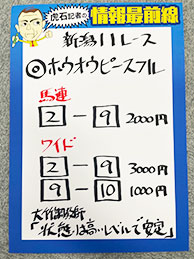 虎石記者の
情報最前線
新潟11レース
◎ホウオウピースフル
馬連
2-9 2000円
ワイド
2-9 3000円
9-10 1000円
「状態は高いレベルで安定」